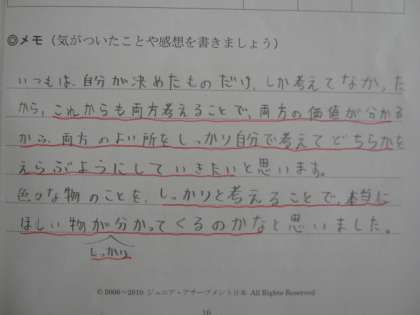 ◎メモ（気がついたことや感想を書きましょう）
いつもは、自分が決めたものだけ、しか考えてなかった
から、これからも両方考えることで、両方の価値が分かる
から、両方のよい所をしっかり自分で考えてどちらかを
えらぶようにしていきたいと思います。
色々な物のことを、しっかりと考えることで、本当に
ほしい物が分かってくるのかなと思いました。
しっかり
© 2006～2010 ジュニア・アチーブメント日本 All Rights Reserved
10